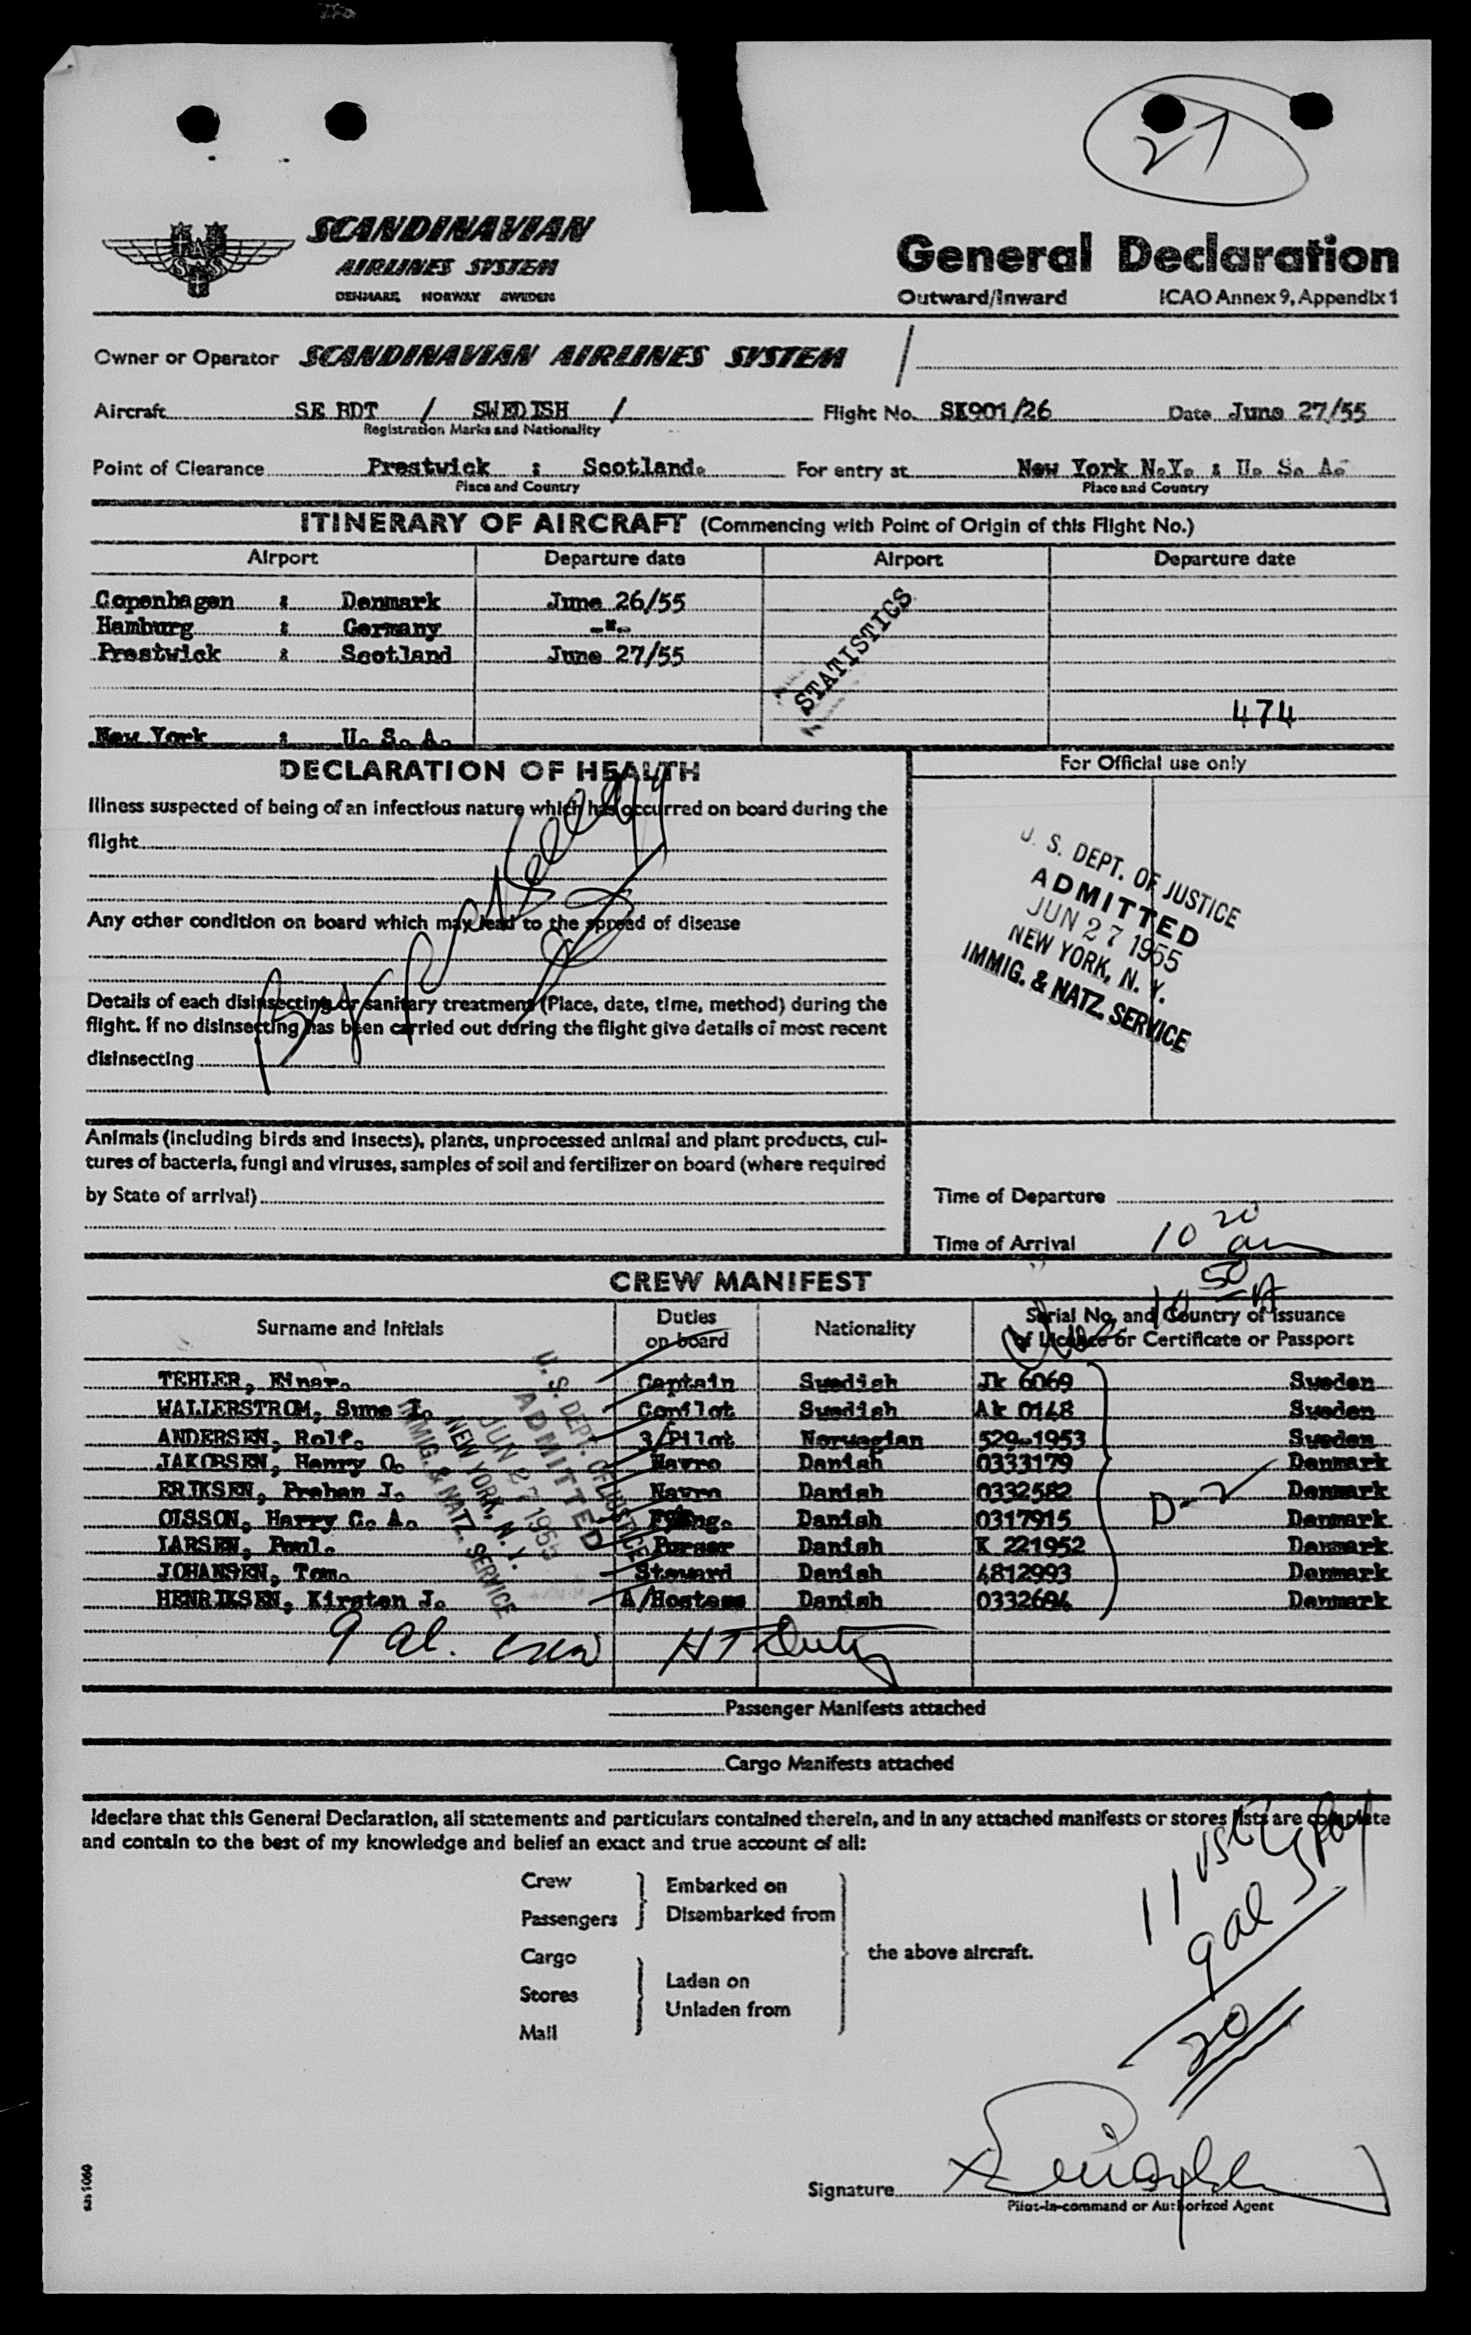 27
SCANDINAVIAN
AIRLINES SYSTEM
DENMARK NORWAY SWEDEN
General Declaration
Outward/Inward ICAO Annex 9, Appendix 1
Owner or Operator SCANDINAVIAN AIRLINES SYSTEM /
Aircraft SE BDT / SWEDISH / Flight No. SK901/26 Date June 27/55
Registration Marks and Nationality
Point of Clearance Prestwick : Scotland. For entry at New York N.Y. : U. S. A.
Place and Country Place and Country
ITINERARY OF AIRCRAFT (Commencing with Point of Origin of this Flight No.)
Airport Departure date Airport Departure date
Copenhagen : Denmark June 26/55
Hamburg : Germany -"-
Prestwick : Scotland June 27/55
STATISTICS
474
New York : U. S. A.
DECLARATION OF HEALTH
For Official use only
Illness suspected of being of an infectious nature which has occurred on board during the
flight
Any other condition on board which may lead to the spread of disease
Details of each disinsecting or sanitary treatment (Place, date, time, method) during the
flight. If no disinsecting has been carried out during the flight give details of most recent
disinsecting
U. S. DEPT. OF JUSTICE
ADMITTED
JUN 27 1955
NEW YORK, N. Y.
IMMIG. & NATZ. SERVICE
Animals (including birds and insects), plants, unprocessed animal and plant products, cul-
tures of bacteria, fungi and viruses, samples of soil and fertilizer on board (where required
by State of arrival)
Time of Departure
Time of Arrival 10 20 am
50 A
CREW MANIFEST
Surname and Initials Duties on board Nationality Serial No. and Country of Issuance
of Licence or Certificate or Passport
TEHLER, Einar. Captain Swedish Jk 6069 Sweden
WALLERSTROM, Sune I. Copilot Swedish Ak 0148 Sweden
ANDERSEN, Rolf. 3/Pilot Norwegian 529-1953 Sweden
JAKOBSEN, Henry O. Navro Danish 0333179 Denmark
ERIKSEN, Preben J. Navro Danish 0332582 Denmark
OLSSON, Harry C. A. F/Eng. Danish 0317915 Denmark
LARSEN, Poul. Purser Danish K 221952 Denmark
JOHANSEN, Tom. Steward Danish 4812993 Denmark
HENRIKSEN, Kirsten J. A/Hostess Danish 0332694 Denmark
D-2
U. S. DEPT. OF JUSTICE
ADMITTED
JUN 27 1955
NEW YORK, N. Y.
IMMIG. & NATZ. SERVICE
9 al. crew HT Duty
Passenger Manifests attached
Cargo Manifests attached
I declare that this General Declaration, all statements and particulars contained therein, and in any attached manifests or stores lists are complete
and contain to the best of my knowledge and belief an exact and true account of all:
Crew Embarked on
Passengers Disembarked from
the above aircraft.
Cargo
Laden on
Stores
Unladen from
Mail
11 USC
9 al
20
Signature
Pilot-in-command or Authorized Agent
sas 1060